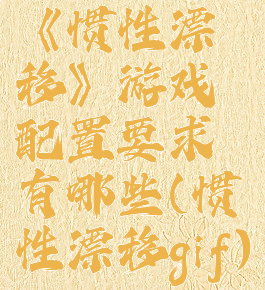 《惯性漂
移》游戏
配置要求
有哪些(惯
性漂移gif)